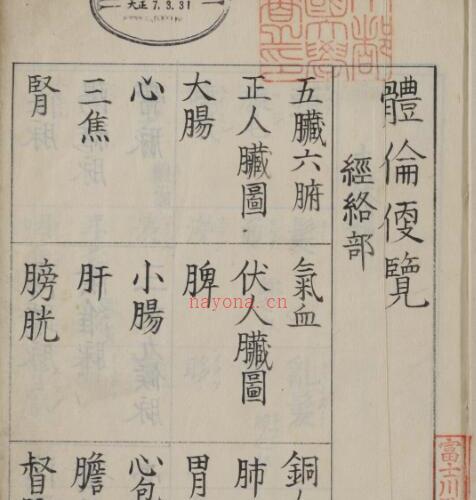 大正7.3.31
體倫便覽
經絡部
五臟六腑 氣血 銅
正人臟圖 伏人臟圖 肺
大腸 脾 胃
心 小腸 心包
三焦 肝 膽
腎 膀胱 督
富士川
nayona.cn